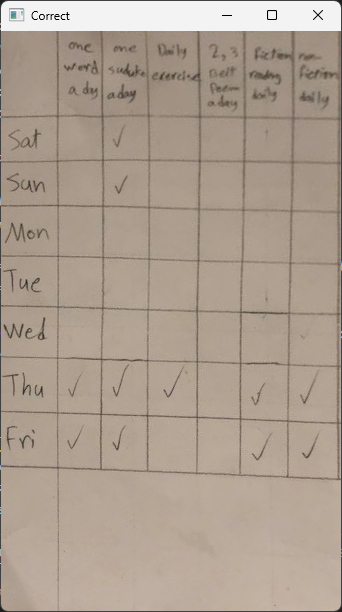 Correct
one word a day
one suduko a day
Daily exercise
2, 3 Poem a day
Fiction reading daily
non-fiction daily
Sat ✓
Sun ✓
Mon
Tue
Wed ✓
Thu ✓ ✓ ✓ ✓ ✓
Fri ✓ ✓ ✓ ✓